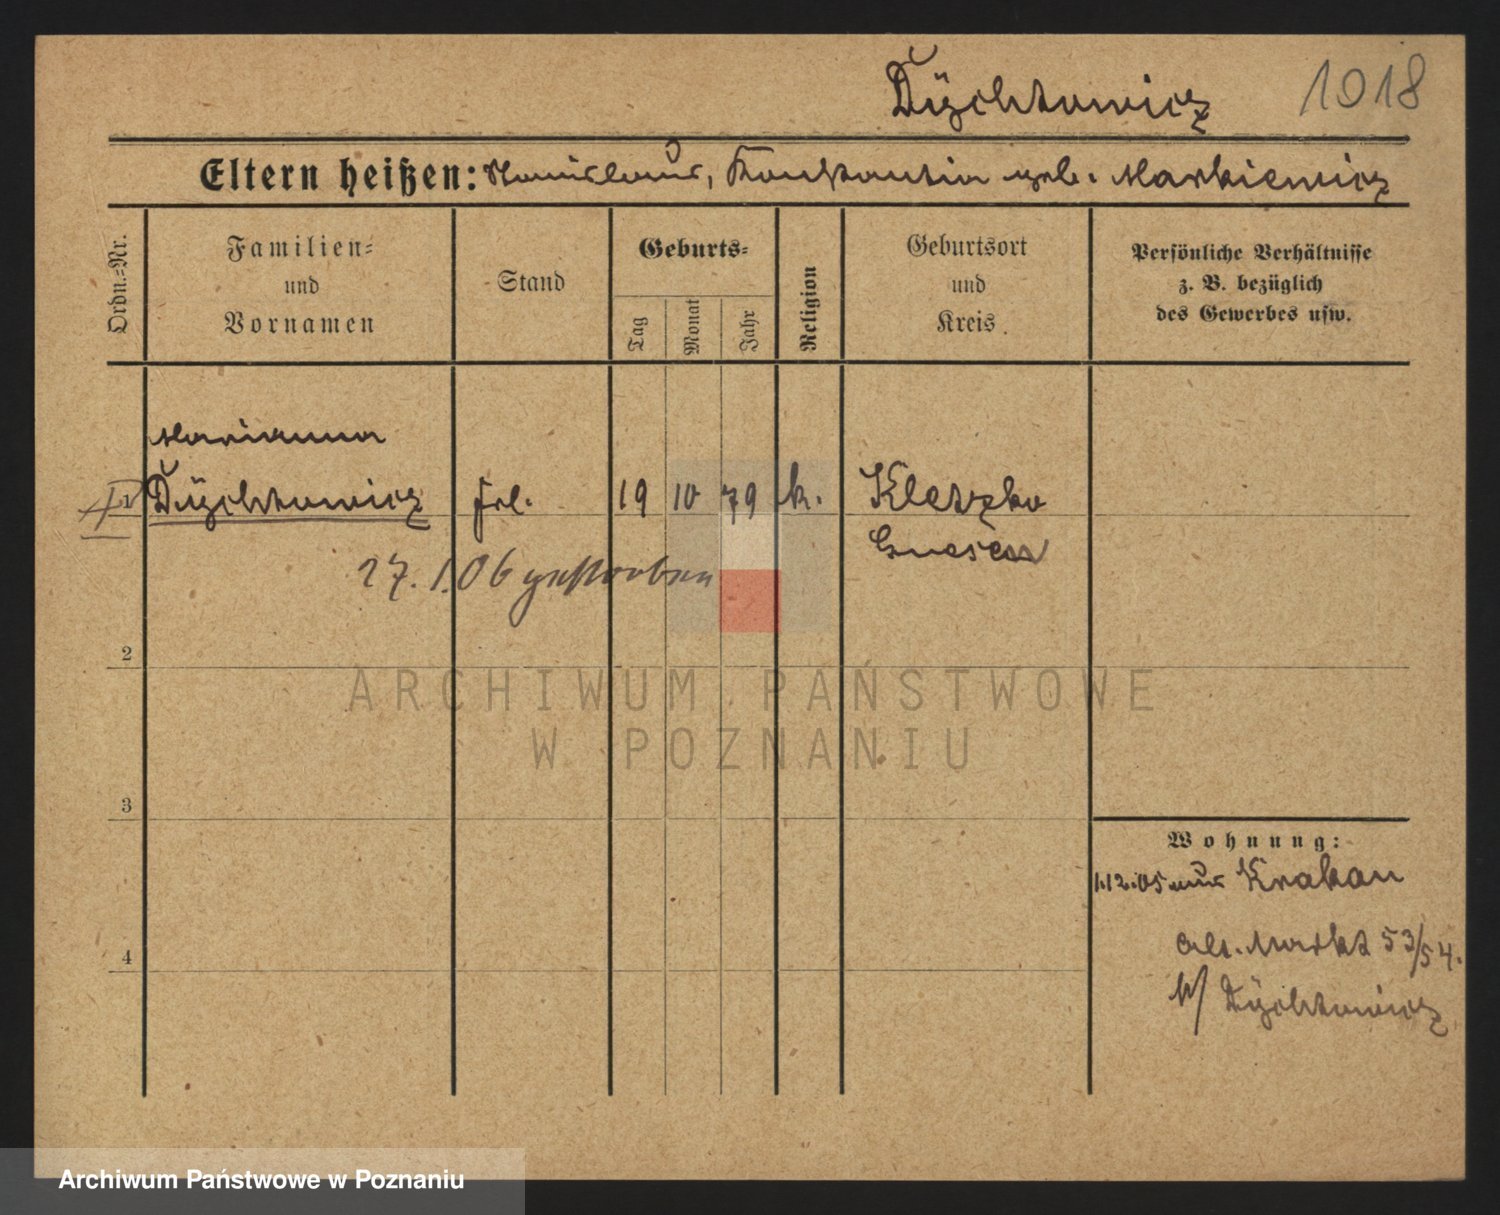 Dÿchtowicz 1018
Eltern heißen: Stanislaus, Konstantia geb. Markiewicz
Ordn.-Nr.
Familien-
und
Vornamen
Stand
Geburts-
Tag
Monat
Jahr
Religion
Geburtsort
und
Kreis.
Persönliche Verhältnisse
z. B. bezüglich
des Gewerbes usw.
Marianna
Dÿchtowicz frl. 19 10 79 k. Kletzko
Gnesen
27.1.06 gestorben
2
3
4
Wohnung:
1.12.05 aus Krakau
Alt. Markt 53/54.
b/ Dÿchtowicz
ARCHIWUM PAŃSTWOWE
W POZNANIU
Archiwum Państwowe w Poznaniu